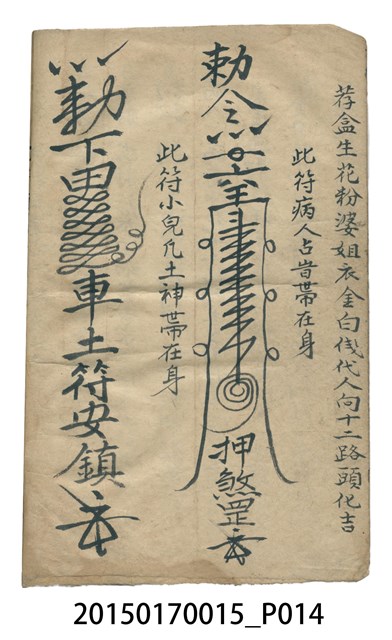 荐盒生花粉婆姐衣金白伐代人向十二路頭化吉
此符病人占旹帶在身
勅令
押煞罡
此符小兒凡土神帶在身
勅下田
車土符安鎮
20150170015_P014